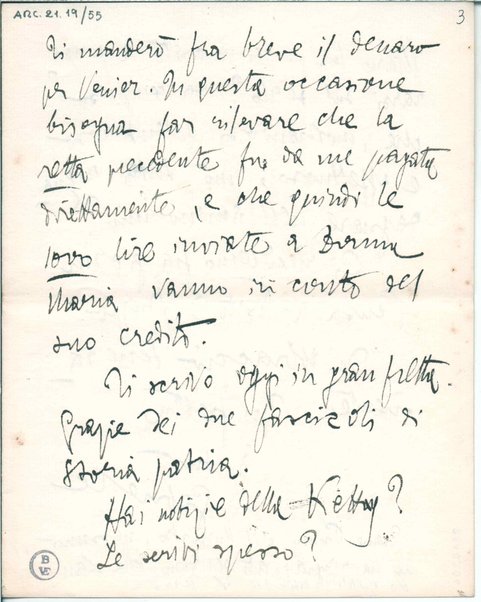 ARC. 21. 19/55
3
Ti manderò fra breve il denaro
per Venier. In questa occasione
bisogna far rilevare che la
retta precedente fu da me pagata
direttamente, e che quindi le
1000 lire inviate a Donna
Maria vanno in conto del
suo credito.
Ti scrivo oggi in gran fretta.
Grazie dei due fascicoli di
Storia patria.
Hai notizie della Ketty?
Le scrivi spesso?
B
VE